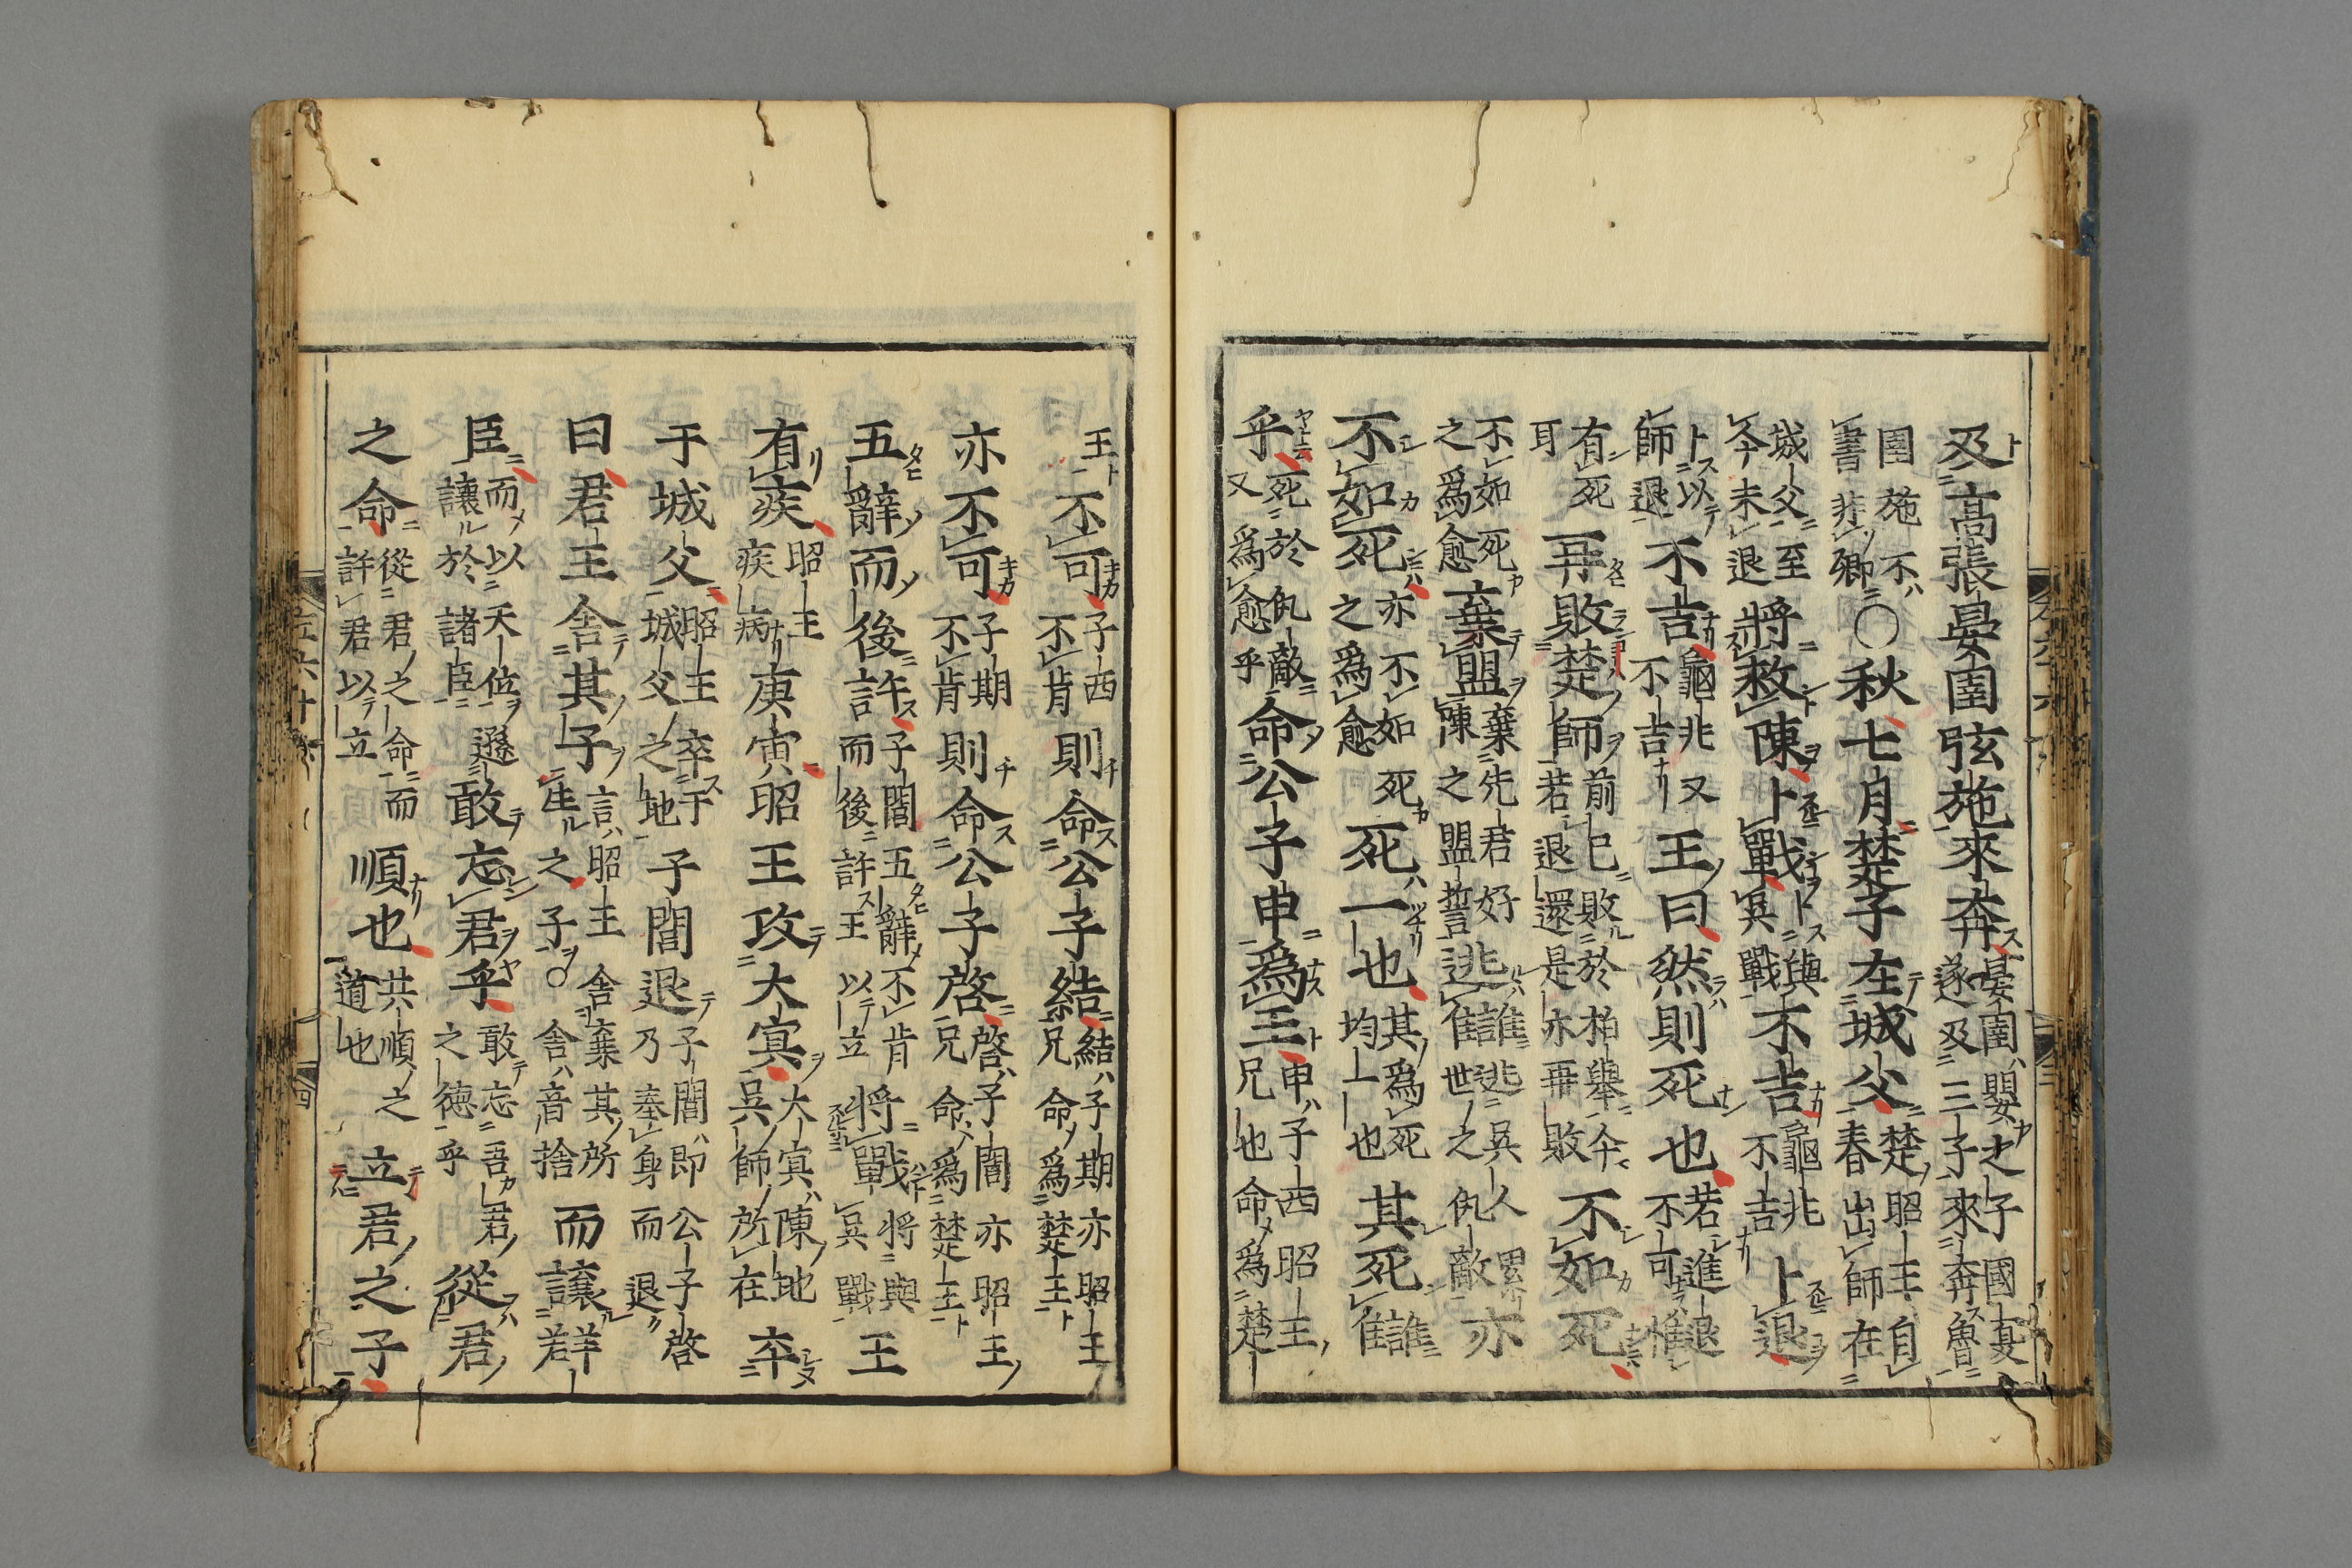 及高張晏圉弦施來奔晏圉嬰之子國夏遂及三子來奔魯
圉施不書非卿○秋七月楚子在城父楚昭王自春出師在
城父至今未退將救陳卜戰卜與兵戰不吉龜兆不吉卜退
卜以師退不吉龜兆又不吉王曰然則死也若進退不可惟
有死耳再敗楚師前已敗於柏舉今若退還是亦再敗不如死
不如死之爲愈棄盟棄先君好陳之盟誓逃讎逃吳人累世之仇敵亦
不如死亦不如死之爲愈死一也其爲死均一也其死讎
乎死於仇敵又爲愈乎命公子申爲王申子西昭王兄也命爲楚
王不可子西不肯則命公子結結子期亦昭王兄命爲楚王
亦不可子期不肯則命公子啓啓子閭亦昭王兄命爲楚王
五辭而後許子閭五辭不肯而後許王以立將戰將與吳戰王
有疾昭王疾病庚寅昭王攻大冥大冥陳地吳師所在卒
于城父昭王卒于城父之地子閭退子閭即公子啓乃奉身而退
曰君王舍其子言昭王舍棄其所生之子○舍音捨而讓群
臣而以天位遜讓於諸臣敢忘君乎敢忘吾君之德乎從君
之命從君之命而許君以立順也共順之道也立君之子